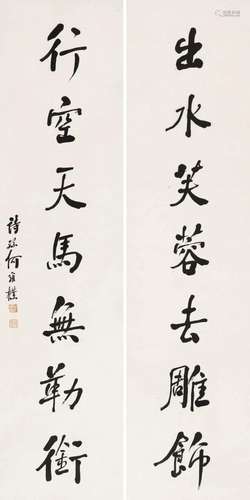 出水芙蓉去雕飾
行空天馬無勒銜
詩孫何維樸